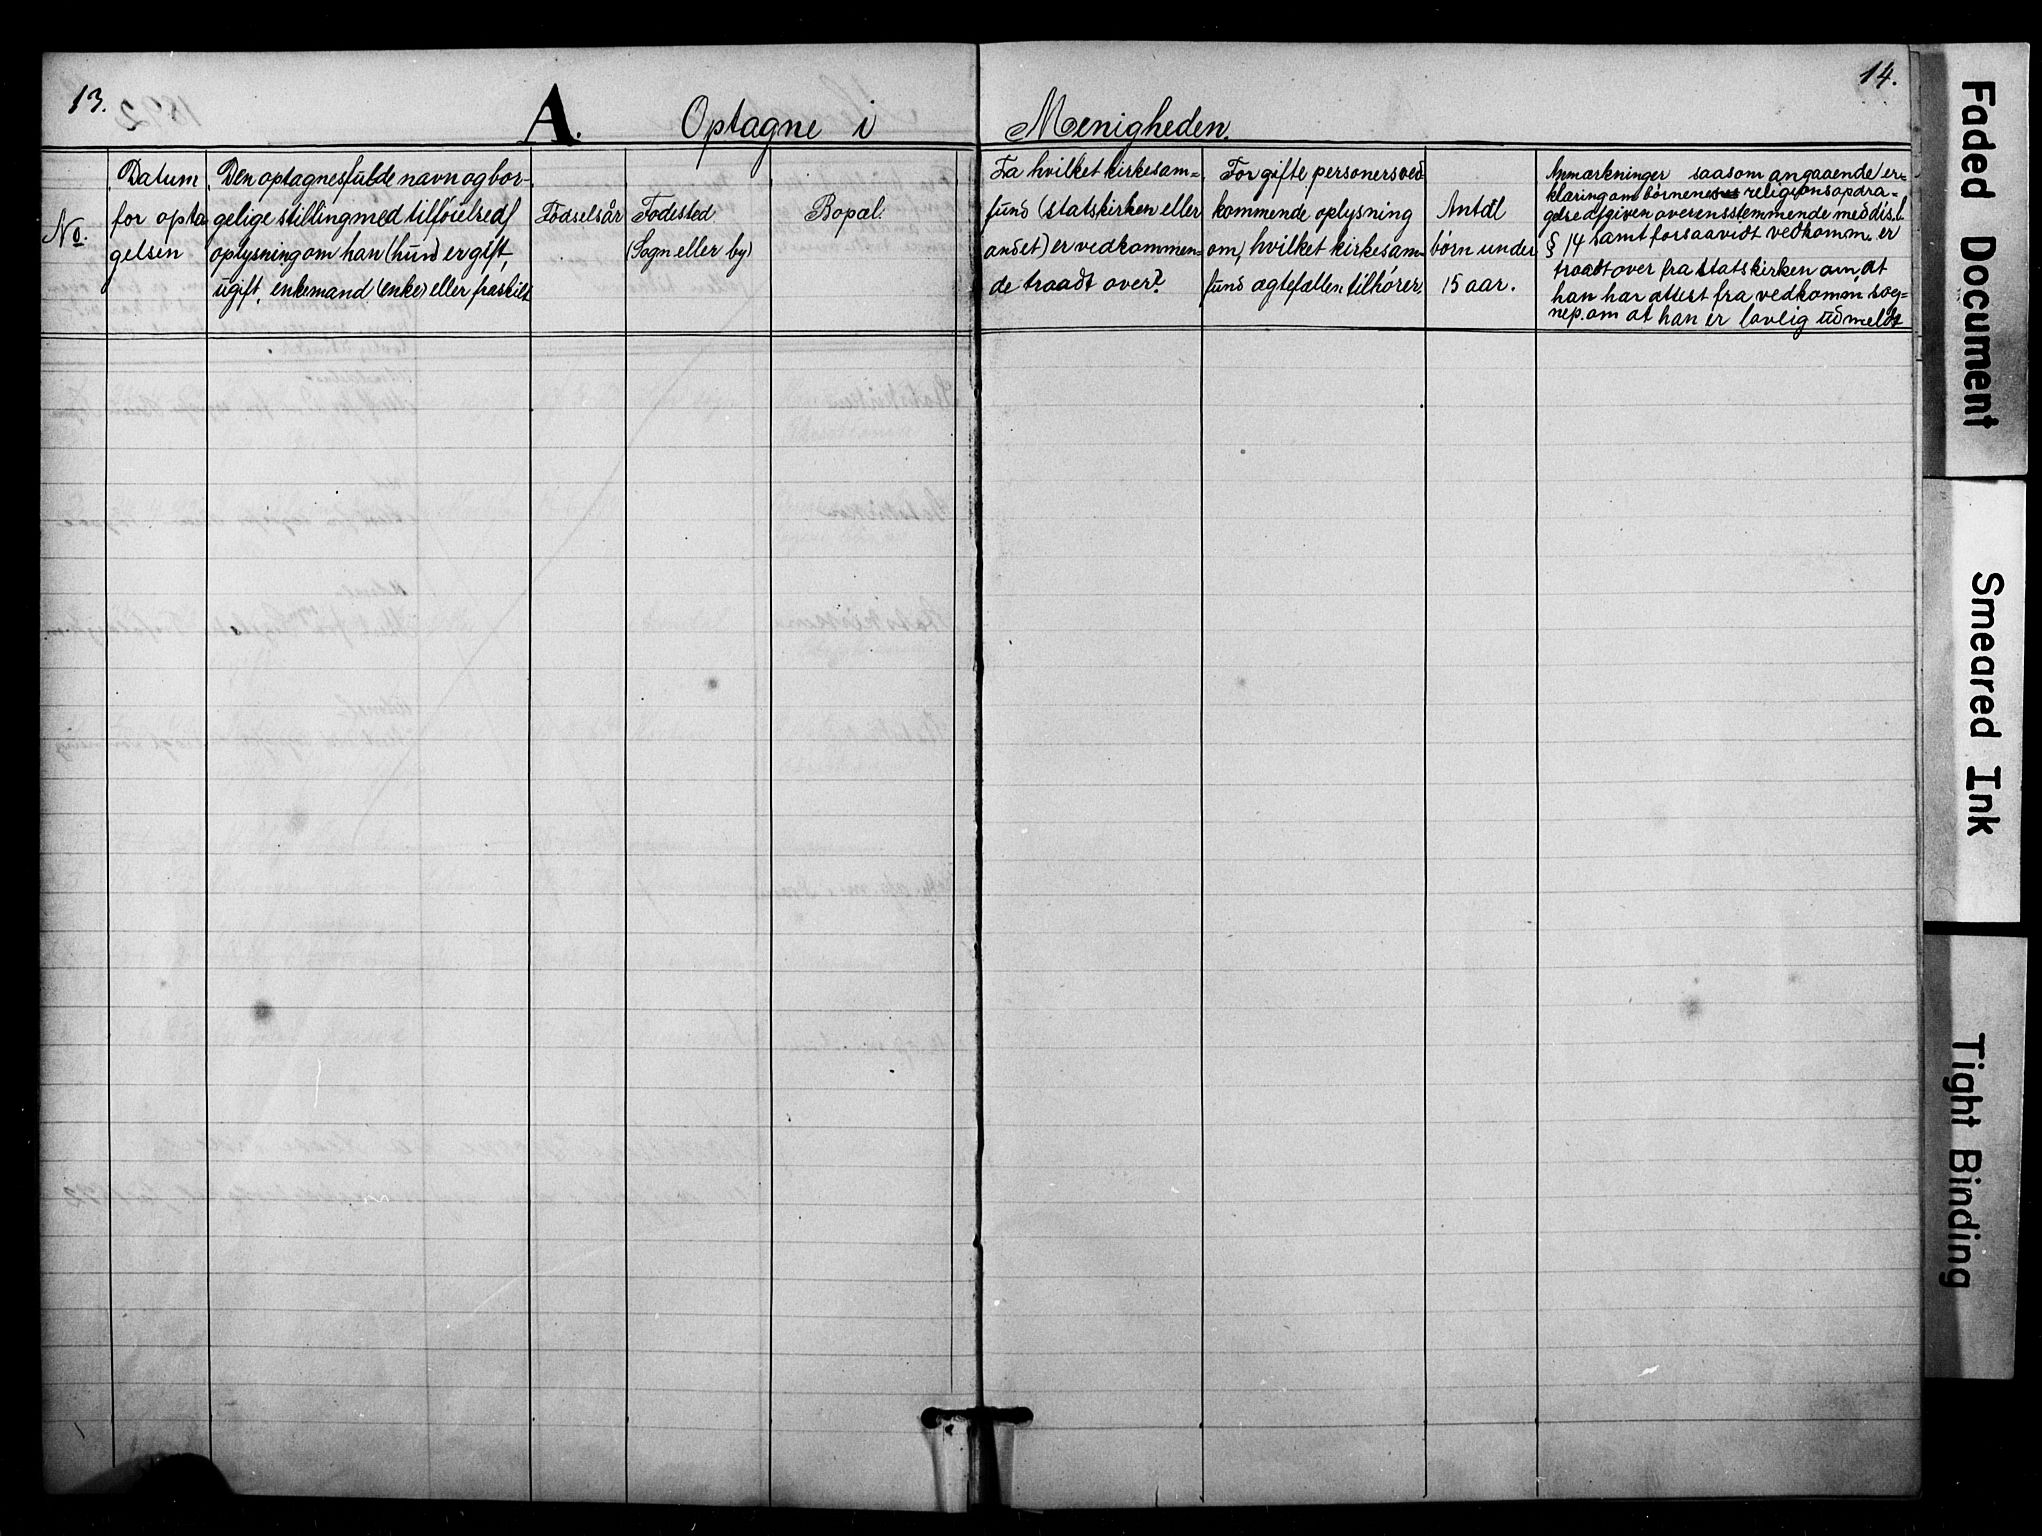 13.
14.
A. Optagne i Menigheden.
No.
Datum
for opta
gelsen
Den optagnes fulde navn og bor-
gelige stilling med tilföielse af
oplysning om han (hun) er gift,
ugift, enkemand (enke) eller fraskilt
Födselsår
Födested
(Sogn eller by)
Bopæl.
Fra hvilket kirkesam-
fund (statskirken eller
andet) er vedkommen-
de traadt over?
For gifte personers ved
kommende oplysning
om, hvilket kirkesam-
fund ægtefællen tilhörer.
Antal
börn under
15 aar.
Anmærkninger saasom angaaende er-
klæring om börnenes religionsopdra-
gelse afgiven overensstemmende med dis. l.
§ 14 samt forsaavidt vedkomm. er
traadt over fra statskirken om, at
han har attest fra vedkomm. sog-
nep. om at han er lovlig udmeldt
Faded Document
Smeared Ink
Tight Binding